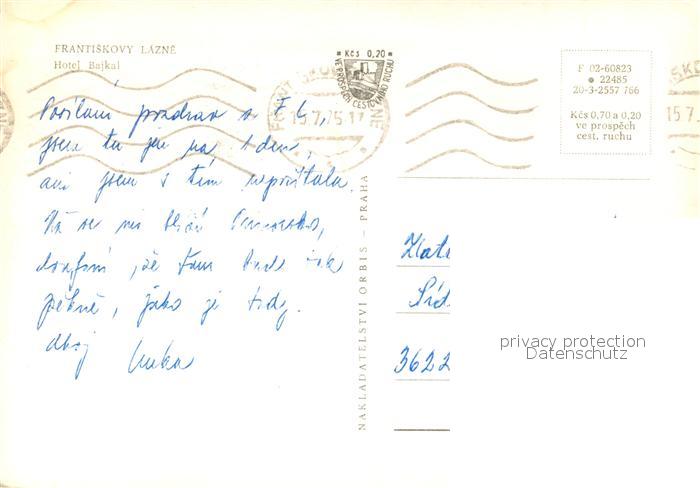 FRANTIŠKOVY LÁZNĚ
Hotel Bajkal
Posílám pozdrav z F. L,
jsem tu jen na 1 den,
ani jsem s tím nepočítala.
se mi
doufám, že tam bude tak
pěkně, jako je tady.
NAKLADATELSTVÍ ORBIS – PRAHA
Kčs 0,20
VE PROSPĚCH CESTOVNÍHO RUCHU
15.7.75-17
F 02-60823
22485
20-3-2557/766
Kčs 0,70 a 0,20
ve prospěch
cest. ruchu
15.7
Zlat
Síd
3622
privacy protection
Datenschutz